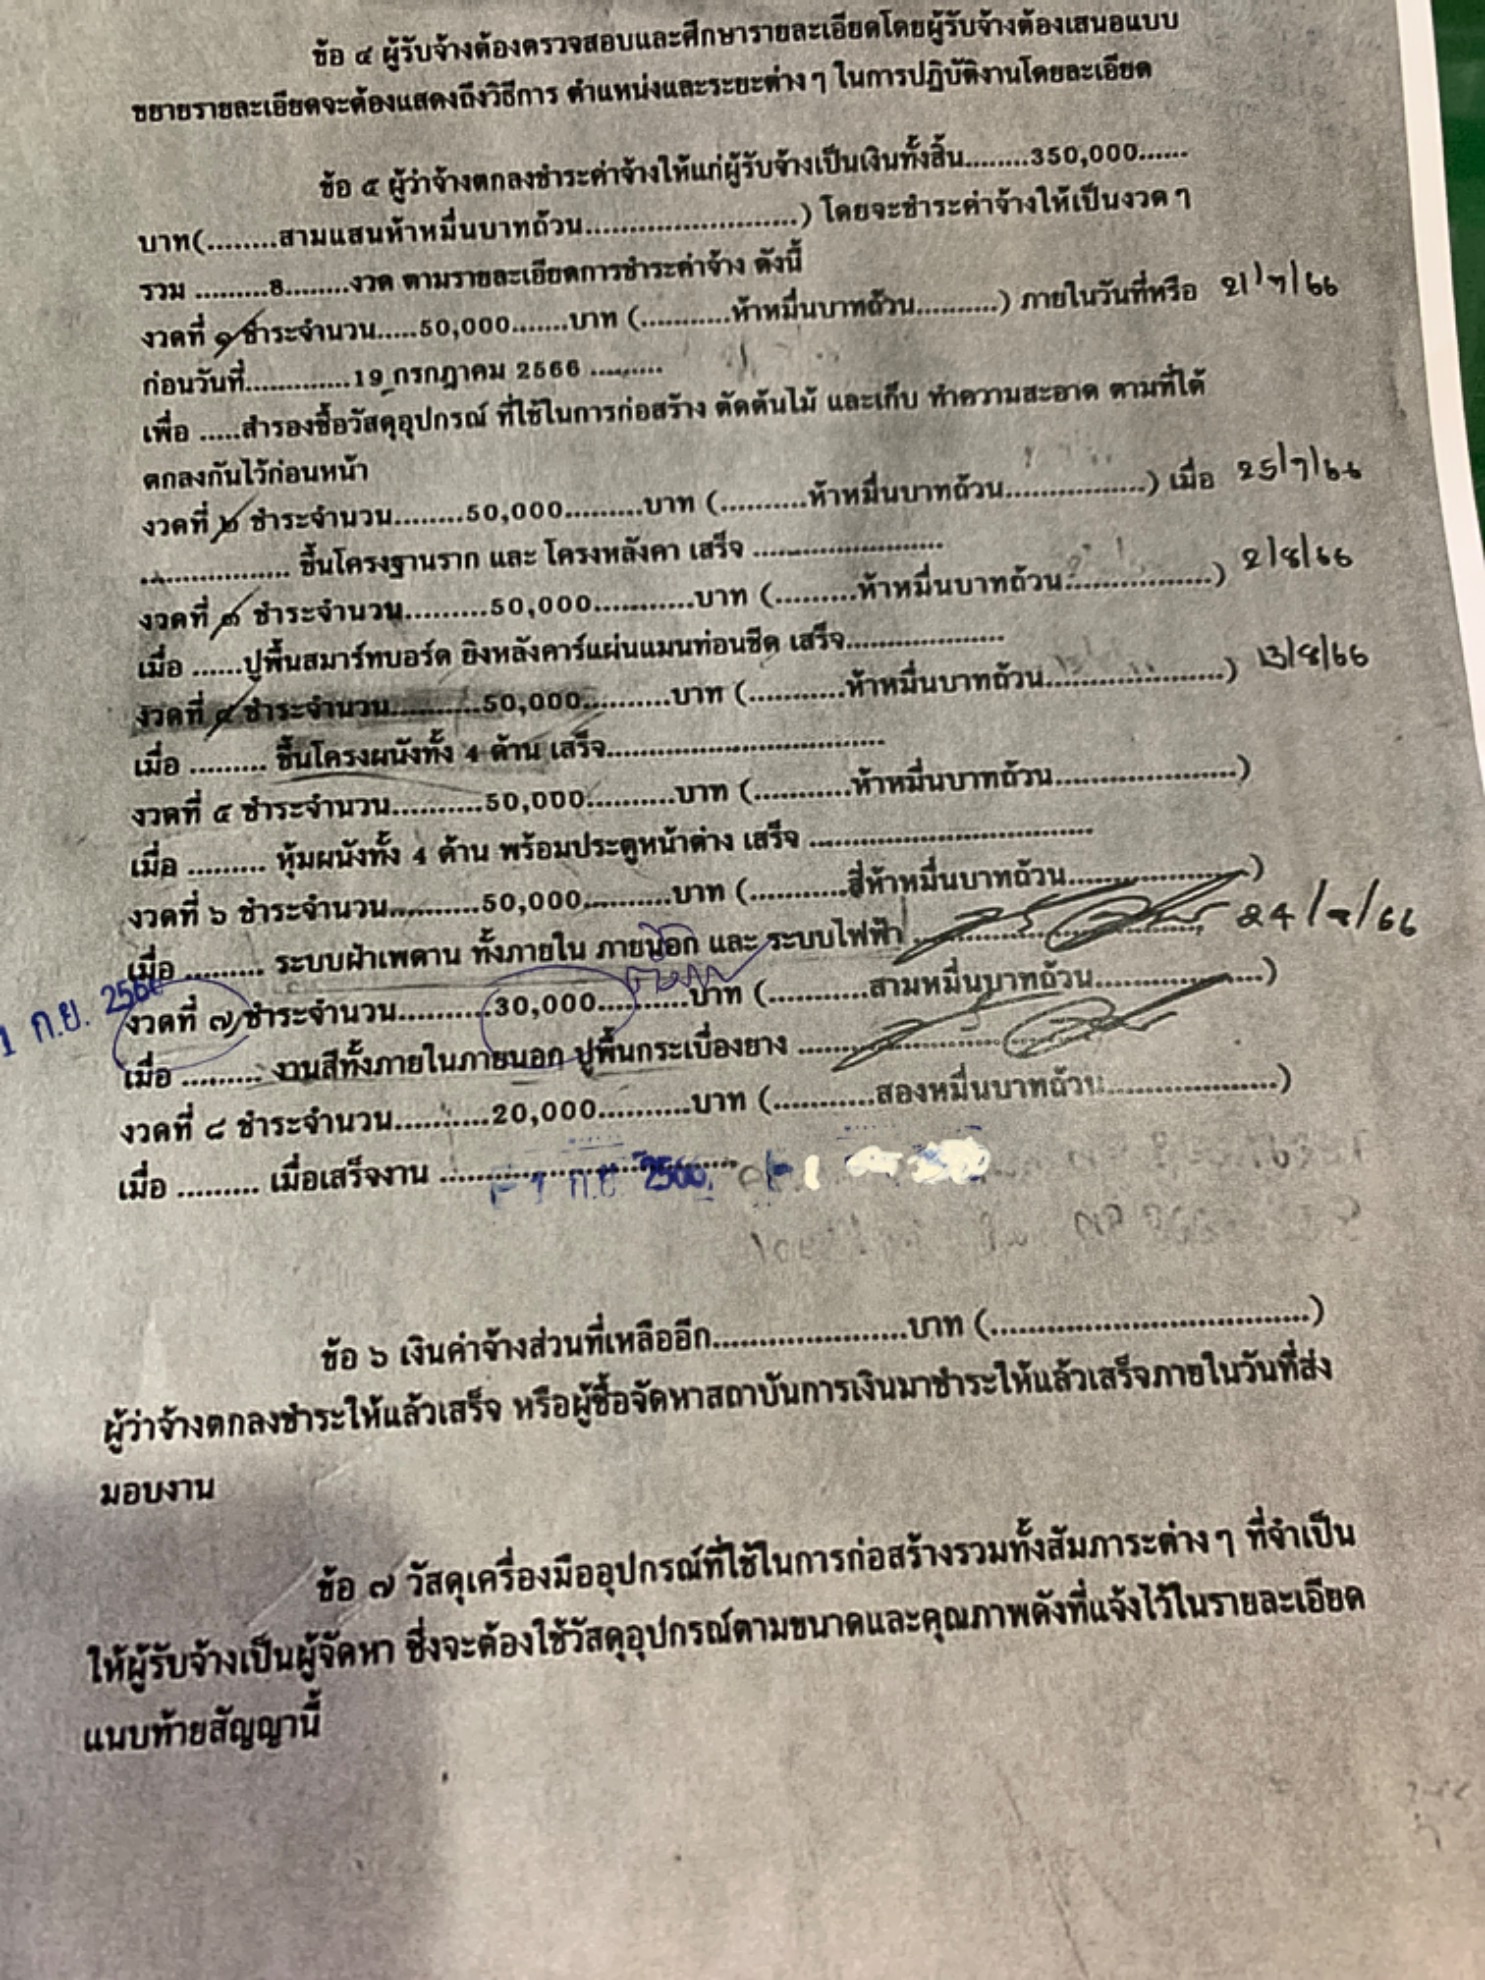 ข้อ ๔ ผู้รับจ้างต้องตรวจสอบและศึกษารายละเอียดโดยผู้รับจ้างต้องเสนอแบบ
ขยายรายละเอียดจะต้องแสดงถึงวิธีการ ตำแหน่งและระยะต่าง ๆ ในการปฏิบัติงานโดยละเอียด
ข้อ ๕ ผู้ว่าจ้างตกลงชำระค่าจ้างให้แก่ผู้รับจ้างเป็นเงินทั้งสิ้น........350,000......
บาท(.........สามแสนห้าหมื่นบาทถ้วน........................) โดยจะชำระค่าจ้างให้เป็นงวด ๆ
รวม .........8........งวด ตามรายละเอียดการชำระค่าจ้าง ดังนี้
งวดที่ ๑ ชำระจำนวน.....50,000.......บาท (...........ห้าหมื่นบาทถ้วน..........) ภายในวันที่หรือ 21/7/66
ก่อนวันที่.............19 กรกฎาคม 2566 .........
เพื่อ .....สำรองซื้อวัสดุอุปกรณ์ ที่ใช้ในการก่อสร้าง ตัดต้นไม้ และเก็บ ทำความสะอาด ตามที่ได้
ตกลงกันไว้ก่อนหน้า
งวดที่ ๒ ชำระจำนวน........50,000.........บาท (..........ห้าหมื่นบาทถ้วน................) เมื่อ 25/7/66
.................. ขึ้นโครงฐานราก และ โครงหลังคา เสร็จ ........................
งวดที่ ๓ ชำระจำนวน.........50,000...........บาท (.........ห้าหมื่นบาทถ้วน................) 2/8/66
เมื่อ ......ปูพื้นสมาร์ทบอร์ด ยิงหลังคาร์แผ่นแมนท่อนชีด เสร็จ...................
งวดที่ ๔ ชำระจำนวน..........50,000..........บาท (...........ห้าหมื่นบาทถ้วน....................) 13/8/66
เมื่อ ......... ขึ้นโครงผนังทั้ง 4 ด้าน เสร็จ................................
งวดที่ ๕ ชำระจำนวน..........50,000..........บาท (...........ห้าหมื่นบาทถ้วน.....................)
เมื่อ ......... หุ้มผนังทั้ง 4 ด้าน พร้อมประตูหน้าต่าง เสร็จ .................................
งวดที่ ๖ ชำระจำนวน..........50,000..........บาท (...........สี่ห้าหมื่นบาทถ้วน.....................)
เมื่อ ......... ระบบฝ้าเพดาน ทั้งภายใน ภายนอก และ ระบบไฟฟ้า ................................. 24/8/66
1 ก.ย. 256
งวดที่ ๗ ชำระจำนวน..........30,000..........บาท (...........สามหมื่นบาทถ้วน....................)
เมื่อ ......... งานสีทั้งภายในภายนอก ปูพื้นกระเบื่องยาง ..............................
งวดที่ ๘ ชำระจำนวน..........20,000..........บาท (...........สองหมื่นบาทถ้วน....................)
เมื่อ ......... เมื่อเสร็จงาน ..................................
- 1 ก.ย. 2566
ข้อ ๖ เงินค่าจ้างส่วนที่เหลืออีก......................บาท (....................................)
ผู้ว่าจ้างตกลงชำระให้แล้วเสร็จ หรือผู้ซื้อจัดหาสถาบันการเงินมาชำระให้แล้วเสร็จภายในวันที่ส่ง
มอบงาน
ข้อ ๗ วัสดุเครื่องมืออุปกรณ์ที่ใช้ในการก่อสร้างรวมทั้งสัมภาระต่าง ๆ ที่จำเป็น
ให้ผู้รับจ้างเป็นผู้จัดหา ซึ่งจะต้องใช้วัสดุอุปกรณ์ตามขนาดและคุณภาพดังที่แจ้งไว้ในรายละเอียด
แนบท้ายสัญญานี้